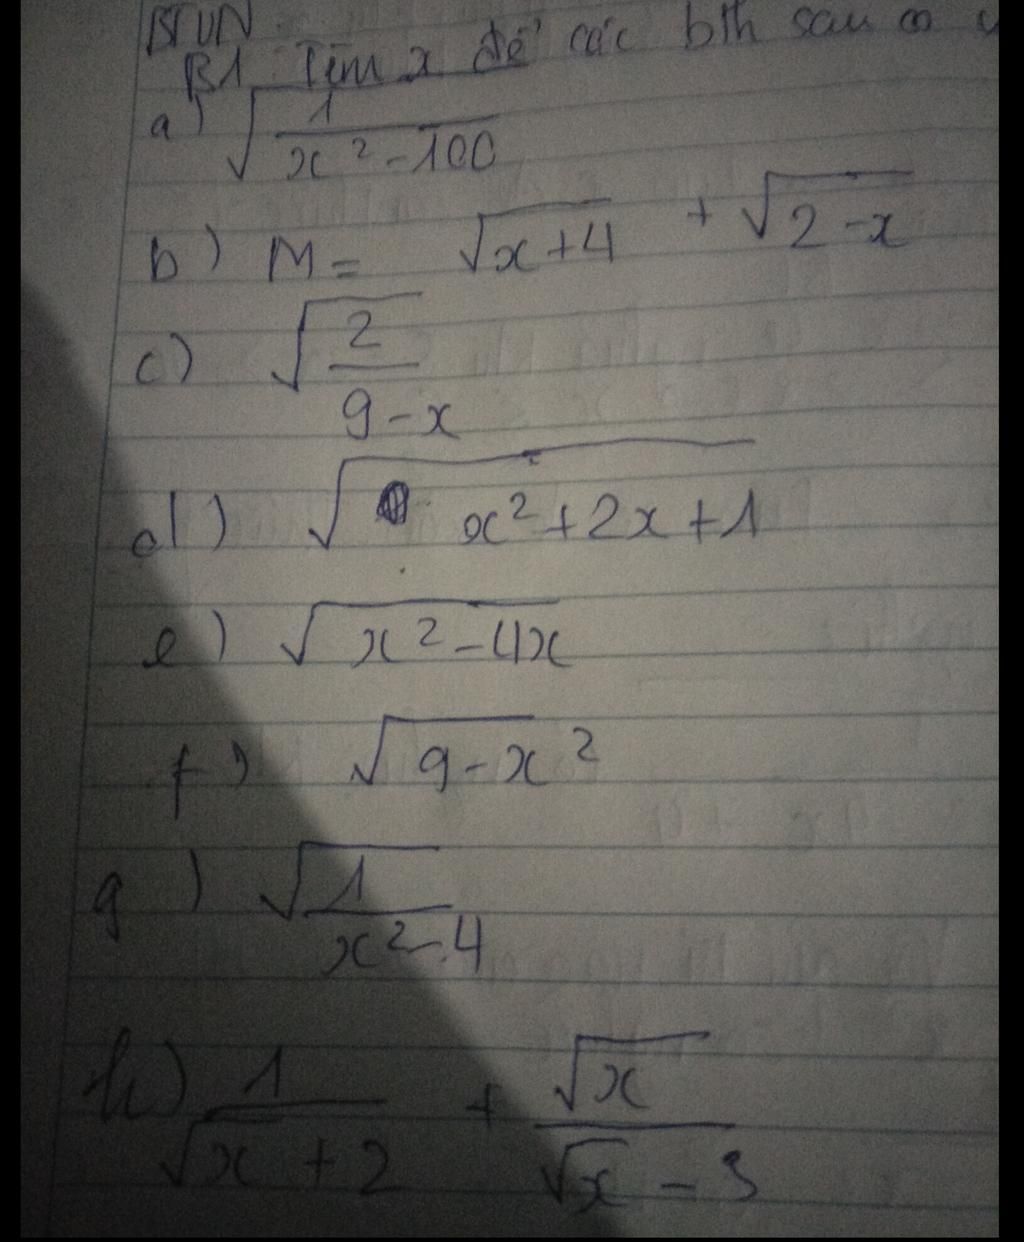 BTVN
B1 Tìm x để các bth sau có
a) √(1/(x² - 100))
b) M = √(x+4) + √(2-x)
c) √(2/(9-x))
d) √(x² + 2x + 1)
e) √(x² - 4x)
f) √(9 - x²)
g) √(1/(x² - 4))
h) 1/(√x + 2) + √x/(√x - 3)